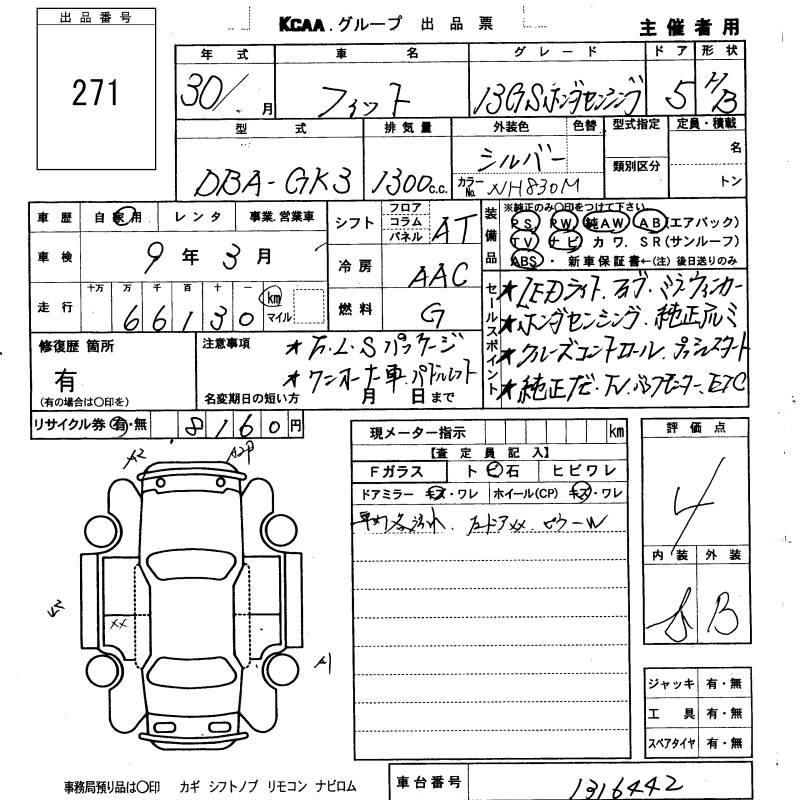 出品番号
271
KCAA.グループ 出品票
主催者用
年式 車名 グレード ドア 形状
30/ 月 フィット 13GSホンダセンシング 5 H/B
型式 排気量 外装色 色替 型式指定 定員・積載
DBA-GK3 1300c.c. シルバー 類別区分 名
カラーNo. NH830M トン
車歴 自家用 レンタ 事業.営業車
車検 9年3月
走行 十万 万 千 百 十 一 km マイル
66130
シフト フロア コラム パネル AT
冷房 AAC
燃料 G
装備品
※純正のみ〇印をつけて下さい。
PS PW 純AW AB(エアバック)
TV ナビ カワ. SR(サンルーフ)
ABS・新車保証書←(注)後日送りのみ
セールスポイント
★LEDライト.
★ホンダセンシング. 純正アルミ
★クルーズコントロール. プッシュスタート
★純正ナビ.TV.バックモニター.ETC
修復歴 箇所
有
(有の場合は〇印を)
注意事項
★F.L.Sパッケージ
★ワンオーナー車.パドルシフト
名変期日の短い方 月 日まで
リサイクル券 有・無 8160円
現メーター指示 km
【査定員記入】
Fガラス ト ビ 石 ヒビワレ
ドアミラー キズ・ワレ ホイール(CP) キズ・ワレ
評価点
4
内装 外装
B
A2
A2P
XX
A1
ジャッキ 有・無
工具 有・無
スペアタイヤ 有・無
事務局預り品は〇印 カギ シフトノブ リモコン ナビロム
車台番号 1316442